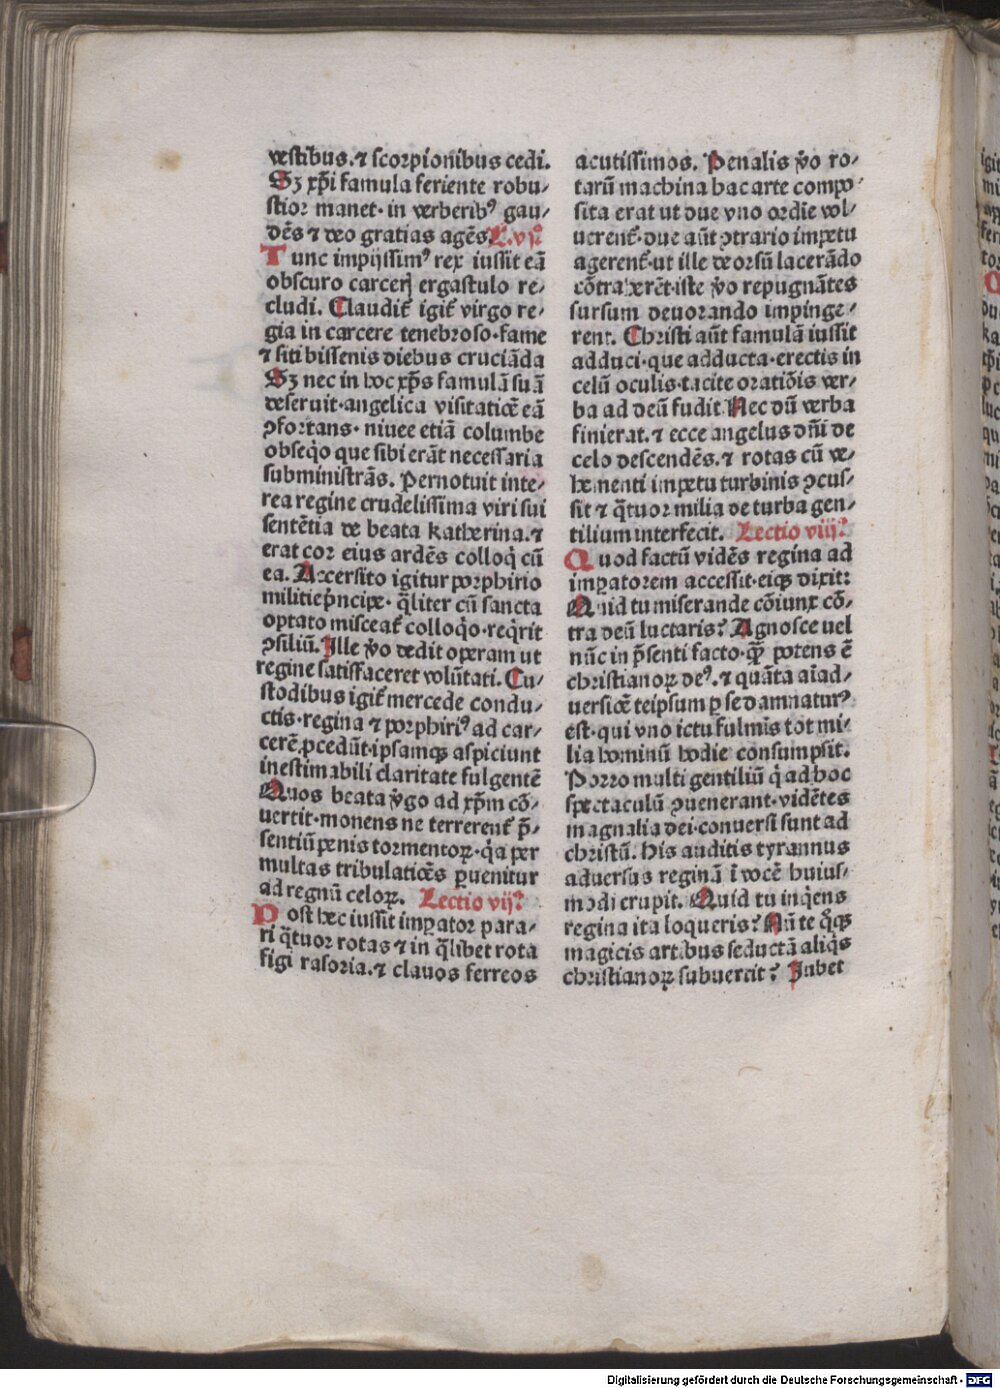 vestibus.⁊ scorpionibus cedi.
Sʒ xp̄i famula feriente robu⸗
stior manet·in verberibꝰ gau⸗
dēs ⁊ deo gratias agēs. L.vj.ᵃ
Tunc impijssimꝰ rex iussit eā
obscuro carcerꝭ ergastulo re⸗
cludi. Claudit᷑ igit᷑ virgo re⸗
gia in carcere tenebroso·fame
⁊ siti bissenis diebus cruciāda
Sʒ nec in hoc xp̄s famulā suā
deseruit·angelica visitatiōe eā
ꝯfortans·niuee etiā columbe
obseq̄o que sibi erāt necessaria
subministrās. Pernotuit inte⸗
rea regine crudelissima viri sui
sentētia de beata katherina.⁊
erat cor eius ardēs colloq̄ cū
ea. Accersito igitur porphirio
militie p̄ncipe·q̄liter cū sancta
optato misceat᷑ colloq̄o·reqͥrit
ꝯsiliū. Ille v̄o dedit operam ut
regine satisfaceret volūtati. Cu⸗
stodibus igit᷑ mercede condu⸗
ctis·regina ⁊ porphiriꝰ ad car⸗
cerē ꝓcedūt·ipsamqꝫ aspiciunt
inestimabili claritate fulgentē
Quos beata v̄go ad xp̄m cō⸗
uertit·monens ne terrerent᷑ p̄⸗
sentiū penis tormentoꝝ·q̄a per
multas tribulatiōes ꝑuenitur
ad regnū celoꝝ. Lectio vij.ᵃ
Post hec iussit imꝑator para⸗
ri q̄tuor rotas ⁊ in q̄libet rota
figi rasoria.⁊ clauos ferreos
acutissimos. Penalis v̄o ro⸗
tarū machina hac arte compo⸗
sita erat ut due vno ordīe vol⸗
uerent᷑·due aūt ꝯtrario impetu
agerent᷑·ut ille deorsū lacerādo
cōtraherēt·iste v̄o repugnātes
sursum deuorando impinge⸗
rent. Christi aūt famulā iussit
adduci·que adducta·erectis in
celū oculis·tacite oratiōis ver⸗
ba ad deū fudit. Nec dū verba
finierat.⁊ ecce angelus dn̄i de
celo descendēs.⁊ rotas cū ve⸗
hementi impetu turbinis ꝯcus⸗
sit ⁊ q̄tuor milia de turba gen⸗
tilium interfecit. Lectio viij.ᵃ
Quod factū vidēs regina ad
imꝑatorem accessit·eiqꝫ dixit:
Quid tu miserande cōiunx cō⸗
tra deū luctaris? Agnosce uel
nūc in p̄senti facto·qꝫ̄ potens ē
christianoꝝ deꝰ.⁊ quāta aīad⸗
uersiōe teipsum ꝑ se damnaturꝰ
est·qui vno ictu fulmīs tot mi⸗
lia hominū hodie consumpsit.
Porro multi gentiliū q̄ ad hoc
spectaculū ꝯuenerant·vidētes
magnalia dei·conuersi sunt ad
christū. His auditis tyrannus
aduersus reginā ī vocē huius⸗
modi erupit. Quid tu inq̄ens
regina ita loqueris? Nū te q̄sqꝫ
magicis artibus seductā aliq̄s
christianoꝝ subuertit? Iubet
Digitalisierung gefördert durch die Deutsche Forschungsgemeinschaft - DFG